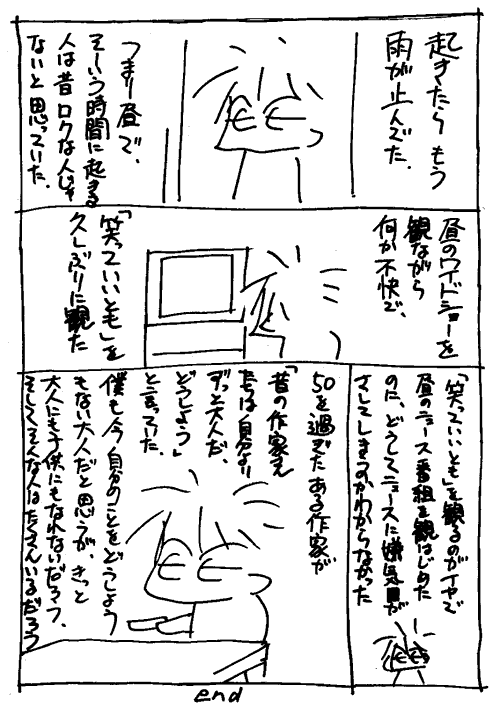 起きたらもう
雨が止んでた。
つまり昼で、
そーいう時間に起きる
人は昔ロクな人じゃ
ないと思っていた。
昼のワイドショーを
観ながら
何か不快で、
「笑っていいとも」を
久しぶりに観た
「笑っていいとも」を観るのがイヤで
昼のニュース番組を観はじめた
のに、どうしてニュースに嫌気が
さしてしまうのかわからなかった
50を過ぎたある作家が
「昔の作家さん
たちは自分より
ずっと大人だ。
どうしよう」
と言っていた。
僕も今自分のことをどうしよう
もない大人だと思うが、きっと
大人にも子供にもなれないだろう、
そしてそんな人はたくさんいるだろう
end